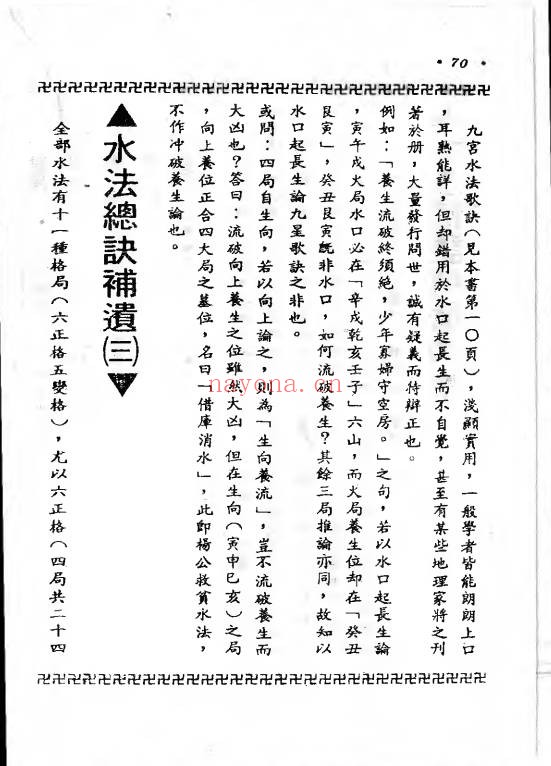 • 70 •
九宮水法歌訣(見本書第一〇頁),淺顯實用,一般學者皆能朗朗上口
,耳熟能詳,但却錯用於水口起長生而不自覺,甚至有某些地理家將之刊
著於册,大量發行問世,誠有疑義而待辯正也。
例如:「養生流破終須絶,少年寡婦守空房。」之句,若以水口起長生論
,寅午戌火局水口必在「辛戌乾亥壬子」六山,而火局養生位却在「癸丑
艮寅」,癸丑艮寅既非水口,如何流破養生?其餘三局推論亦同,故知以
水口起長生論九星歌訣之非也。
或問:四局自生向,若以向上論之,則為「生向養流」,豈不流破養生而
大凶也?答曰:流破向上養生之位雖然大凶,但在生向(寅申巳亥)之局
,向上養位正合四大局之墓位,名曰「借庫消水」,此即楊公救貧水法,
不作冲破養生論也。
▲水法總訣補遺(三)▼
全部水法有十一種格局(六正格五變格),尤以六正格(四局共二十四
nayona.cn